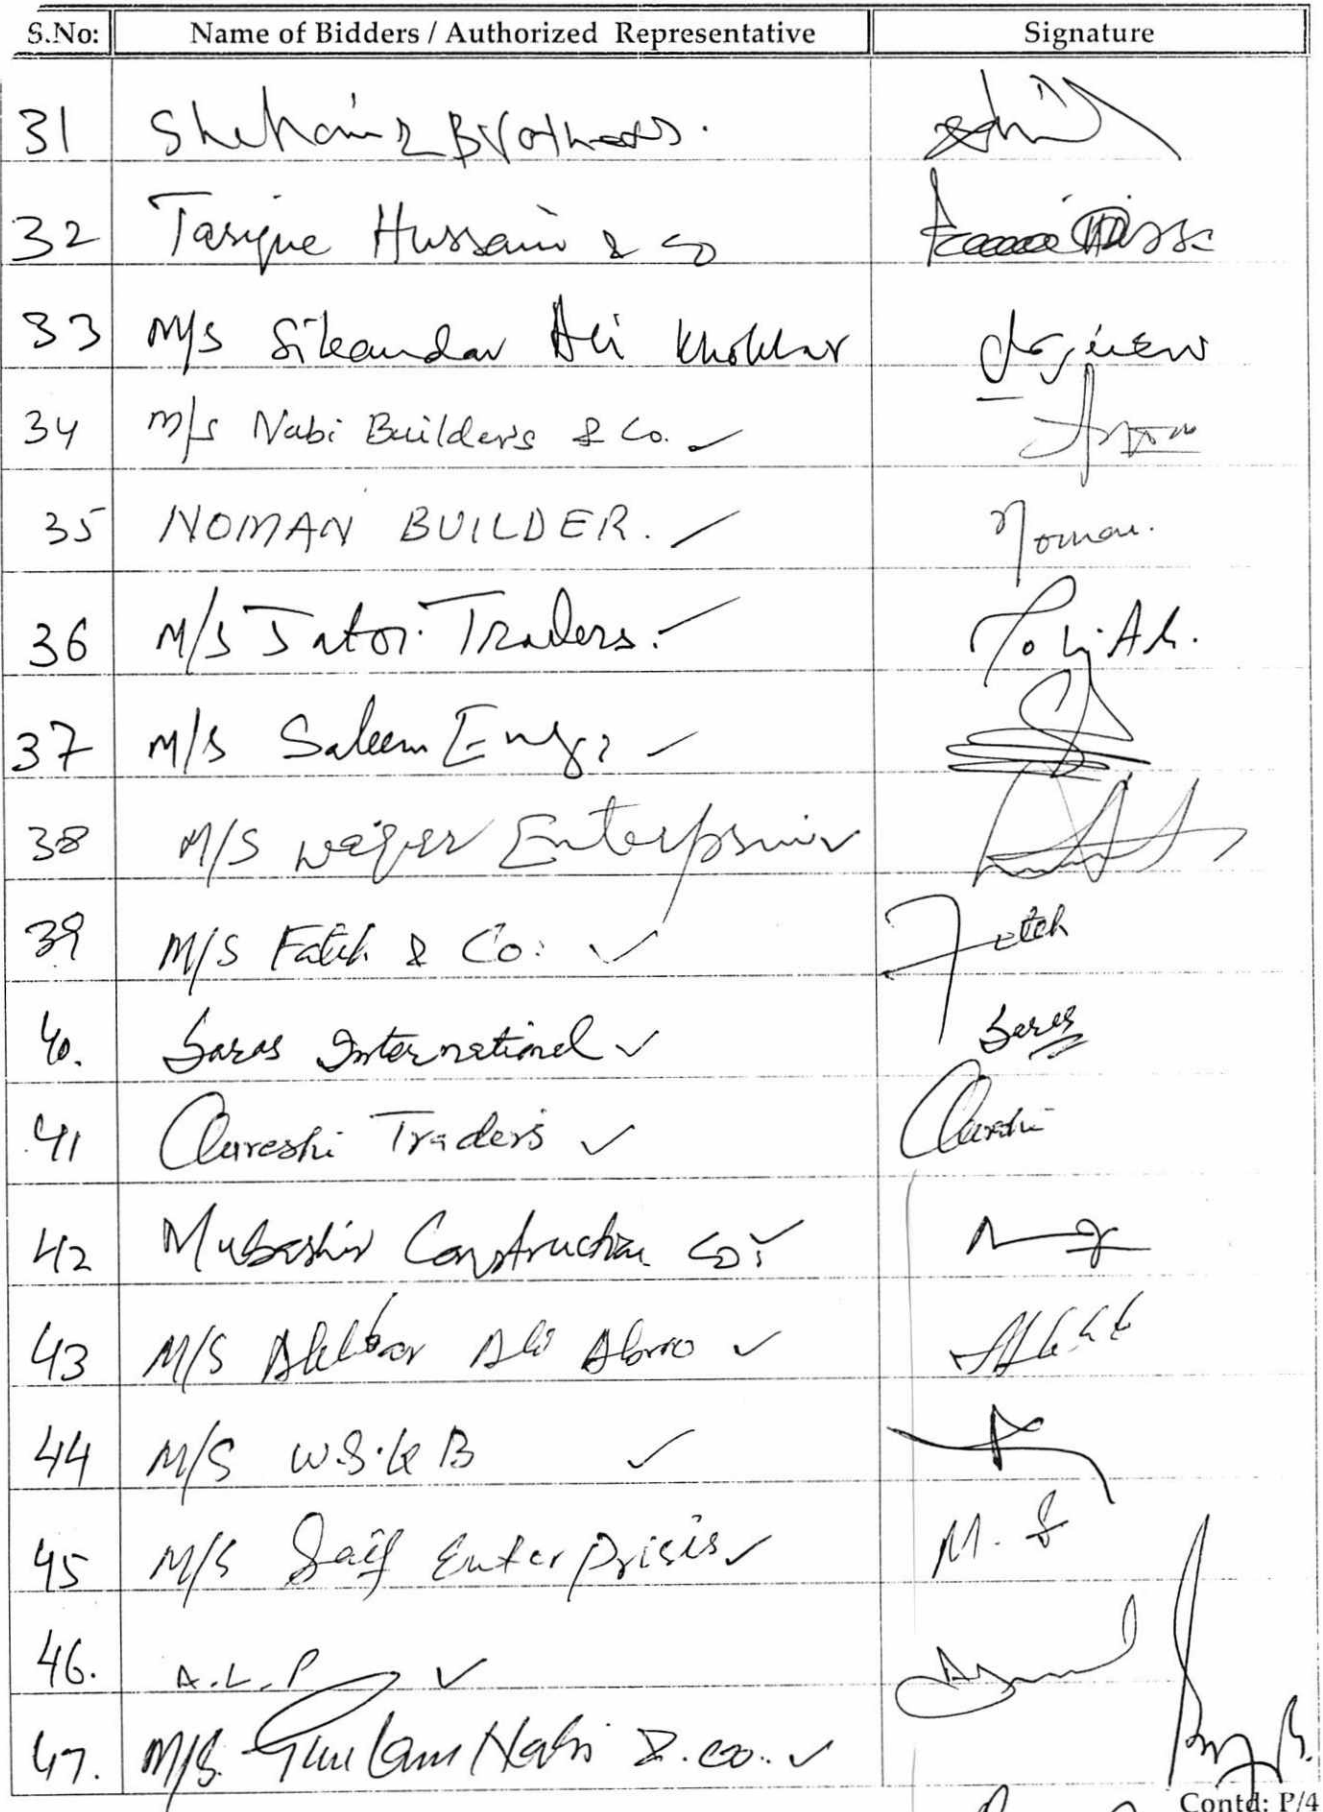 S.No: Name of Bidders / Authorized Representative Signature
31 Brothers.
32 Tarique Hussain & Co
33 M/S Sikandar Ali Khokhar
34 M/S Nabi Builders & Co. ✓
35 NOMAN BUILDER. ✓ Noman.
36 M/S Jatoi Traders. ✓
37 M/S Saleem Engr ✓
38 M/S Enterprises
39 M/S Fateh & Co: ✓ Fateh
40. Saras International ✓ Saras
41 Qureshi Traders ✓ Qureshi
42 Mubashir Construction Co: ✓
43 M/S Akhbar Ali Abro ✓
44 M/S W.S.K B ✓
45 M/S Saif EnterPrisis ✓ M. S
46. A.L.P ✓
47. M/S. Ghulam Nabi & .co. ✓
Contd: P/4